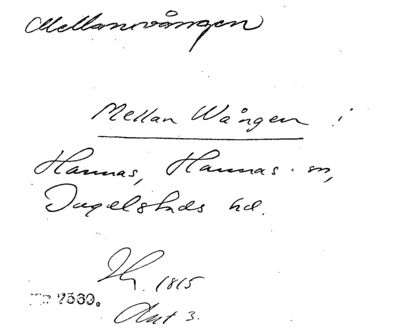 Mellanvången
Mellan Wången i
Hannas, Hannas sn,
Ingelstads hd.
1815
Akt 3.